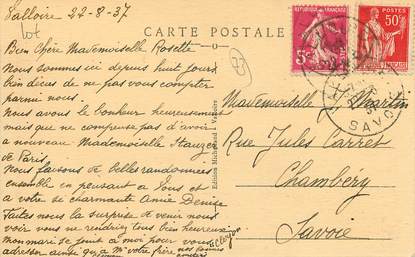 Valloire 22-8-37
CARTE POSTALE
Bien Chère Mademoiselle Rosette
Nous sommes ici depuis huit jours
bien décus de ne pas vous compter
parmi nous.
nous avons le bonheur heureusement
mais que ne compense pas d'avoir
a nouveau Mademoiselle
de Paris
Nous faisons de belles randonnées
ensemble en pensant a Vous et
a votre si charmante Amie Denise
Faites nous la surprise de venir nous
voir vous ne rendriez tous bien heureux
Mon mari se joint à moi pour vous
adresser ainsi qu'a Mr votre frère nos bonnes
amitiés
Edition Valloire
RÉPUBLIQUE FRANÇAISE
50c
SAVOIE
Mademoiselle Martin
Rue Jules Carret
Chambéry
Savoie